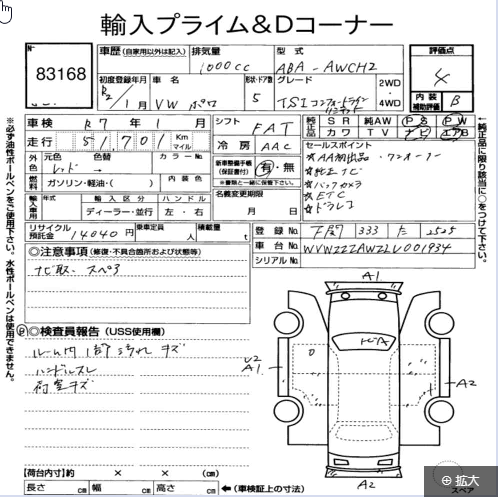 輸入プライム&Dコーナー
No
83168
車歴 (自家用以外は記入)
排気量
1000cc
型式
ABA-AWCHZ
評価点
4
初度登録年月
R2 / 1月
車名
VW ポロ
形状・ドア数
5
グレード
TSI コンフォートライン
2WD
・
4WD
内装
補助評価
B
車検 R7年1月
シフト
FAT
純正品
SR 純AW PS PW
カワ TV ナビ エアB
走行 51,701 Km
マイル
冷房
AAC
セールスポイント
☆AA初出品・ワンオーナー
☆純正ナビ
☆バックカメラ
☆ETC
☆ドラレコ
外色
元色 色替
レッド →
カラーNo.
燃料
ガソリン・軽油・( )
内装色
新車整備手帳
(保証書付)
有・無
※書類と一緒に保管下さい。
輸入車用
年式
輸入区分
ディーラー・並行
ハンドル
左・右
名義変更期限
月 日
リサイクル
預託金
14040円
乗車定員
人
積載量
t
登録No. 333 た 2525
車台No. WVWZZZAWZLU001934
シリアルNo.
◎注意事項 (修復・不具合箇所および状態等)
ナビ取、スペア
◎検査員報告 (USS使用欄)
ルーム内 1部 汚れ キズ
ハンドルスレ
荷室キズ
A1
U2
A1
A2
A2
スペア
【荷台内寸】約 × × (cm)
長さ cm 幅 cm 高さ cm
←(車検証上の寸法)
※必ず油性ボールペンをご使用下さい。水性ボールペンは使用できません。
←純正品に限り該当に○をつけて下さい。
拡大